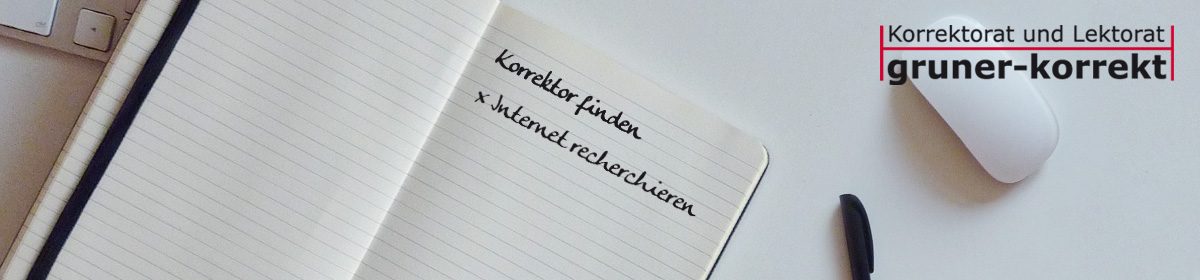 Korrektor finden
x Internet recherchieren
Korrektorat und Lektorat
gruner-korrekt